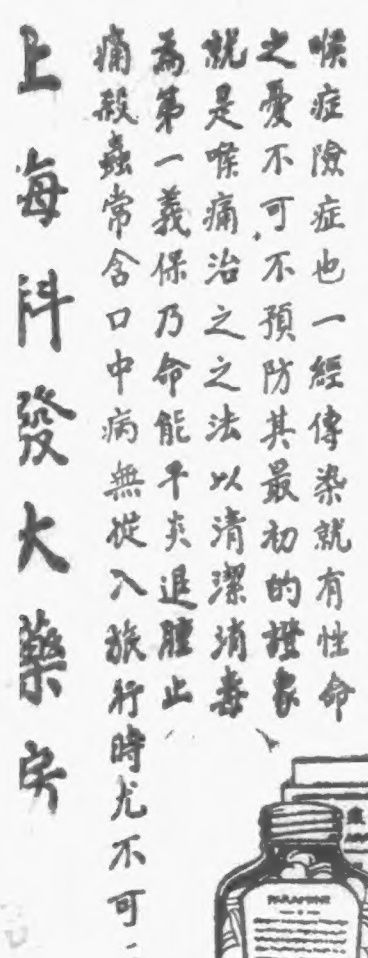 喉症險症也一經傳染就有性命
之憂不可不預防其最初的證象
就是喉痛治之之法以清潔消毒
為第一義保乃命能平炎退腫止
痛殺蟲常含口中病無從入旅行時尤不可
上海科發大藥房